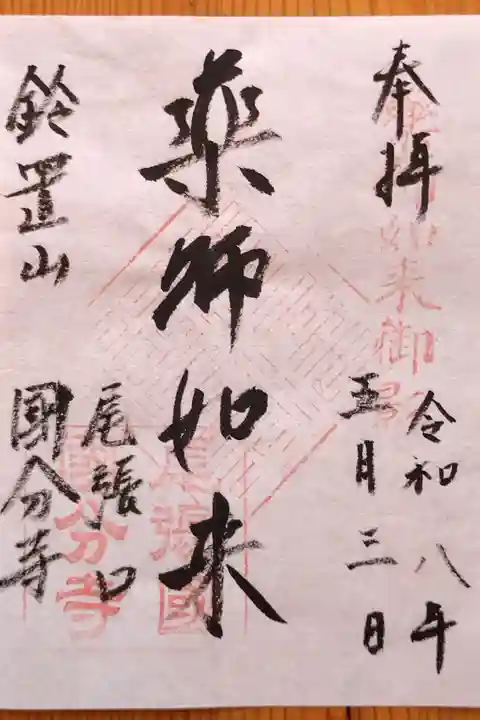 奉拝
令和八年
五月三日
薬師如来
尾張
鈴置山
國分寺
如来御
尾張國
國分寺